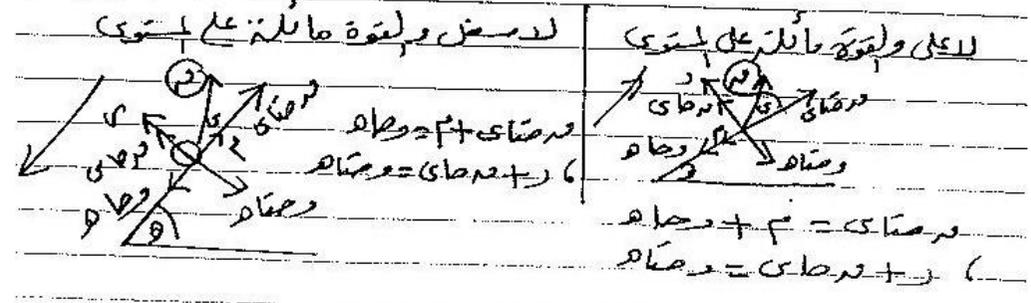 لاعلى والقوة مائلة على المستوى
ر
ق
ى
ق حاى
ق حتاى
م
و حاهـ
و حتاهـ
ق حتاى = م + و حاهـ
، ر + ق حاى = و حتاهـ
لاسفل والقوة مائلة على المستوى
ق
ى
ر
ق حتاى
م
ق حاى
و حاهـ
و حتاهـ
هـ
ق حتاى + م = و حاهـ
، ر + ق حاى = و حتاهـ